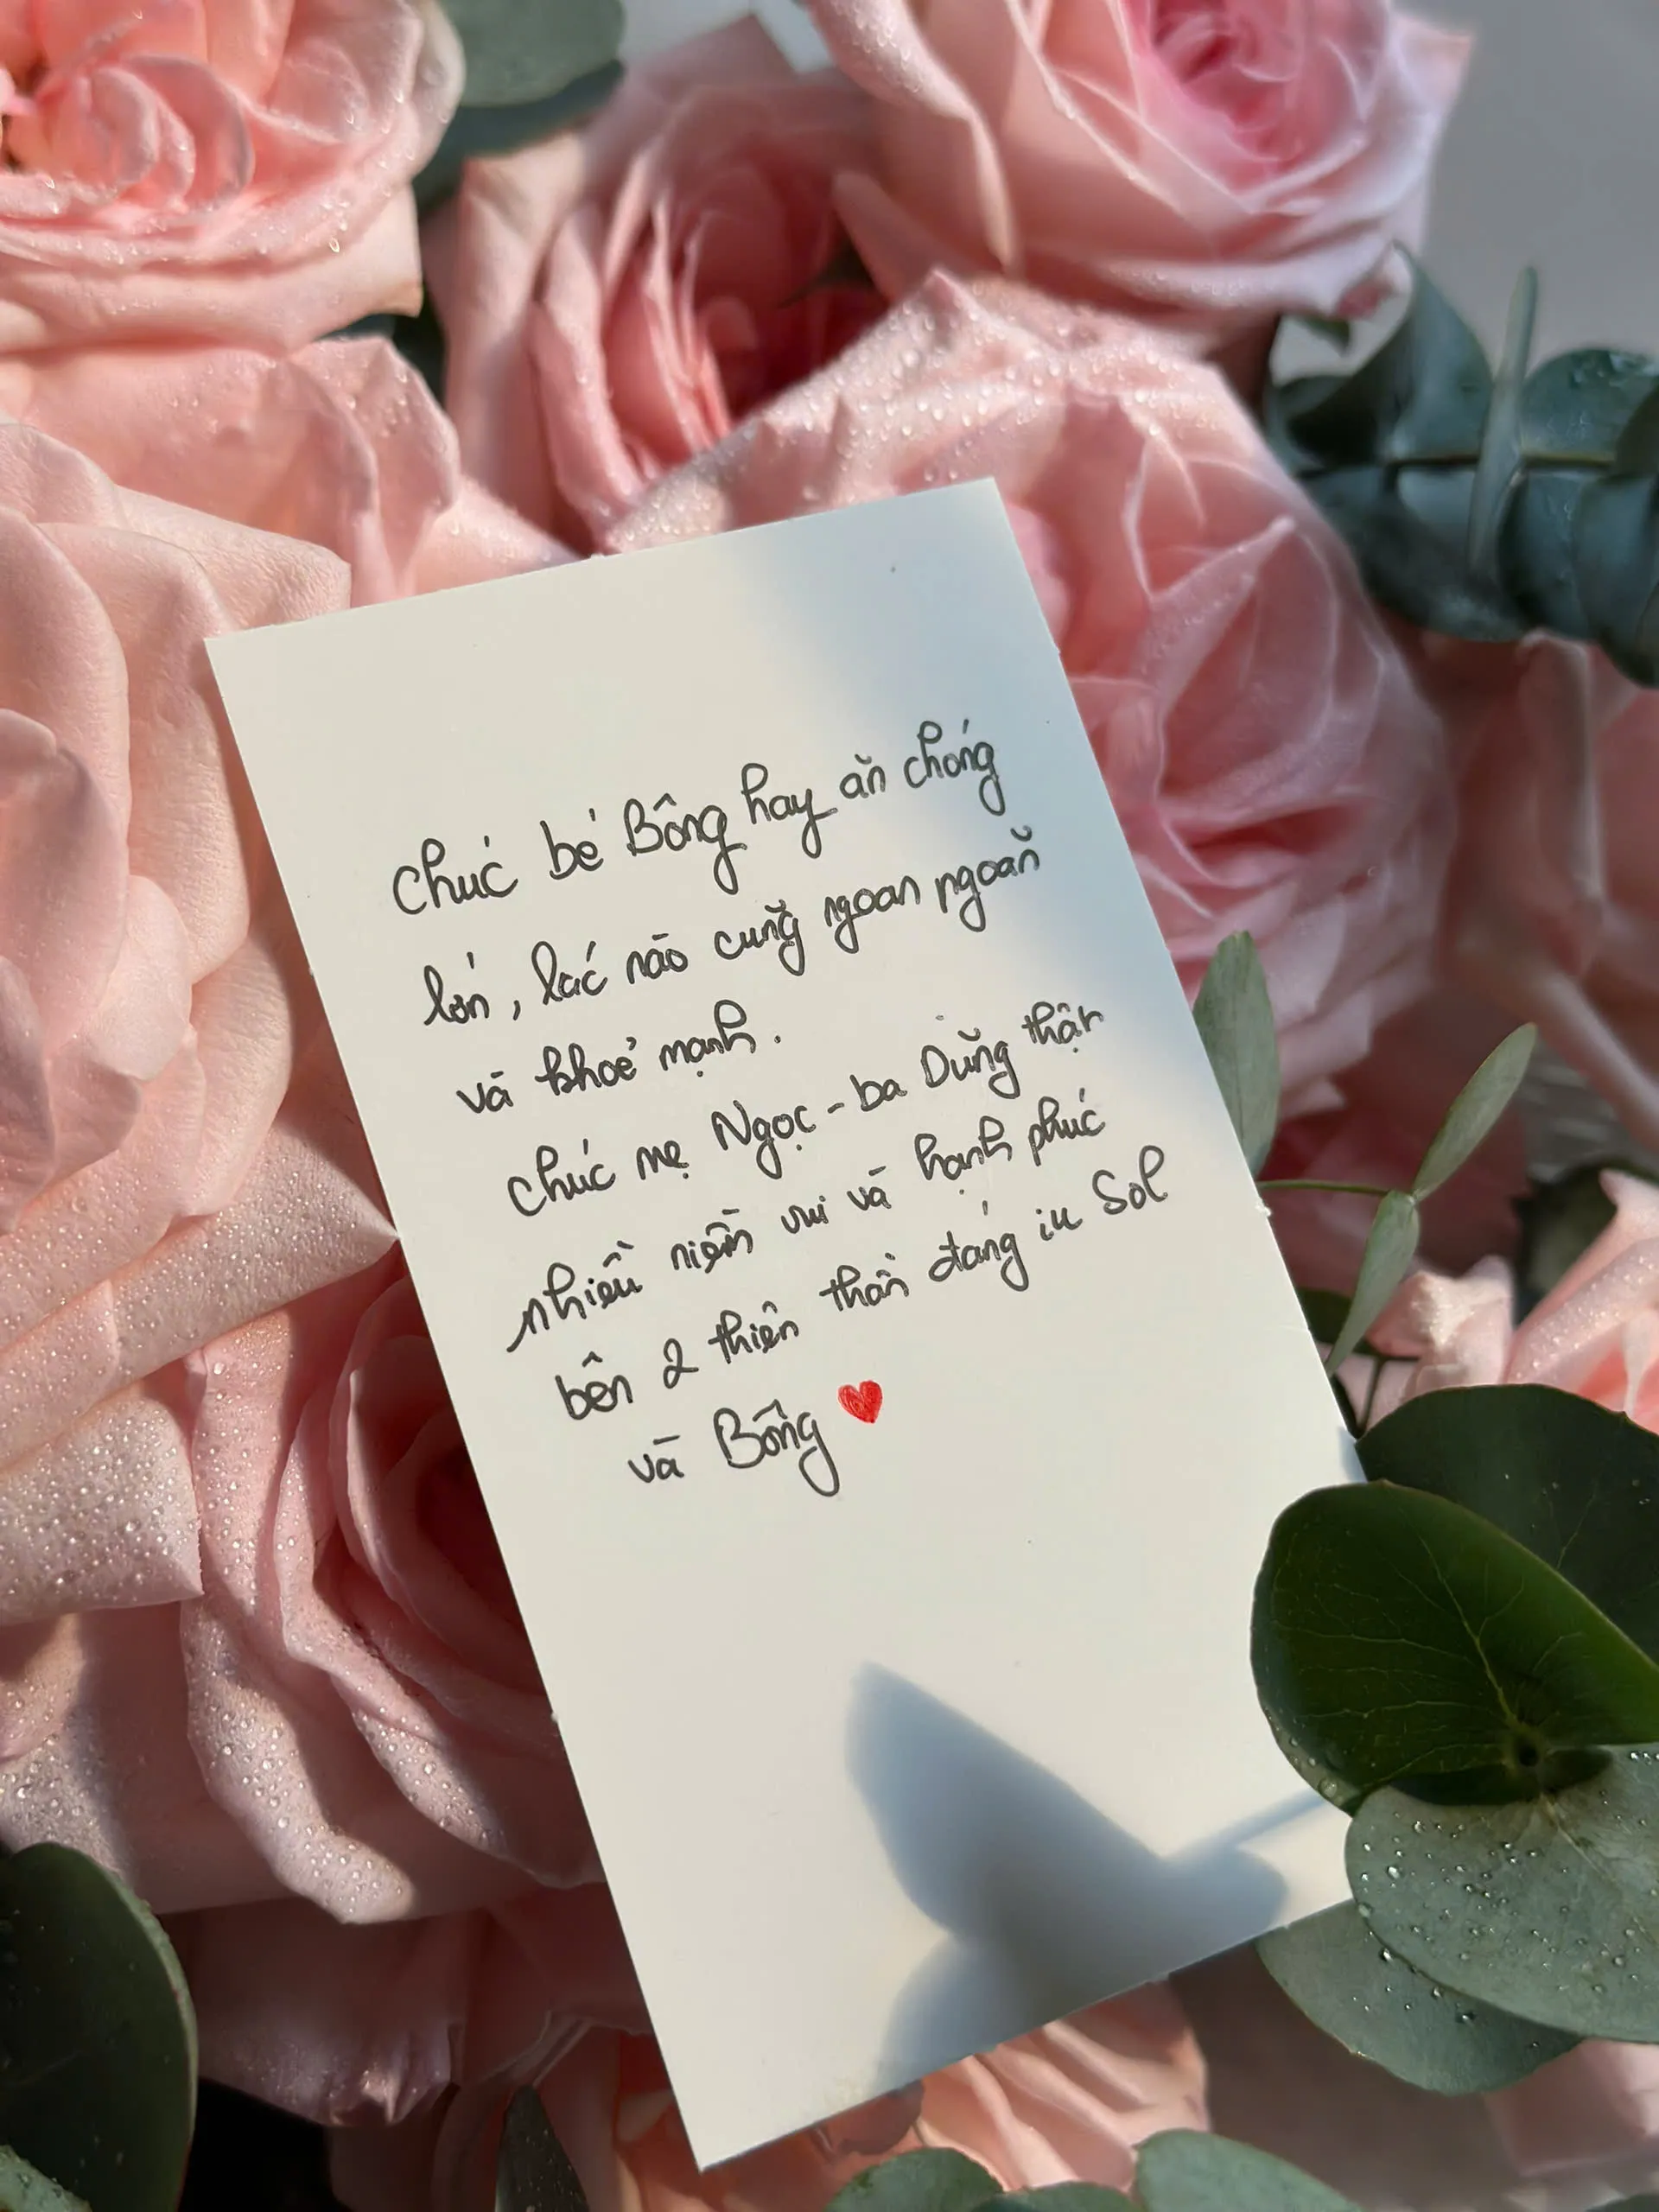 Chúc bé Bông hay ăn chóng
lớn, lúc nào cũng ngoan ngoãn
và khoẻ mạnh.
Chúc mẹ Ngọc - ba Dũng thật
nhiều niềm vui và hạnh phúc
bên 2 thiên thần đáng iu Sol
và Bông